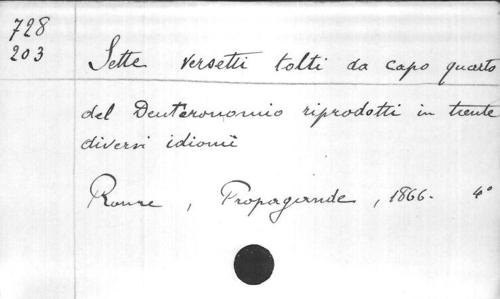 728
203
Sette versetti tolti da capo quarto
del Deuteronomio riprodotti in trente
diversi idiomi
Rome, Propagande, 1866. 4°